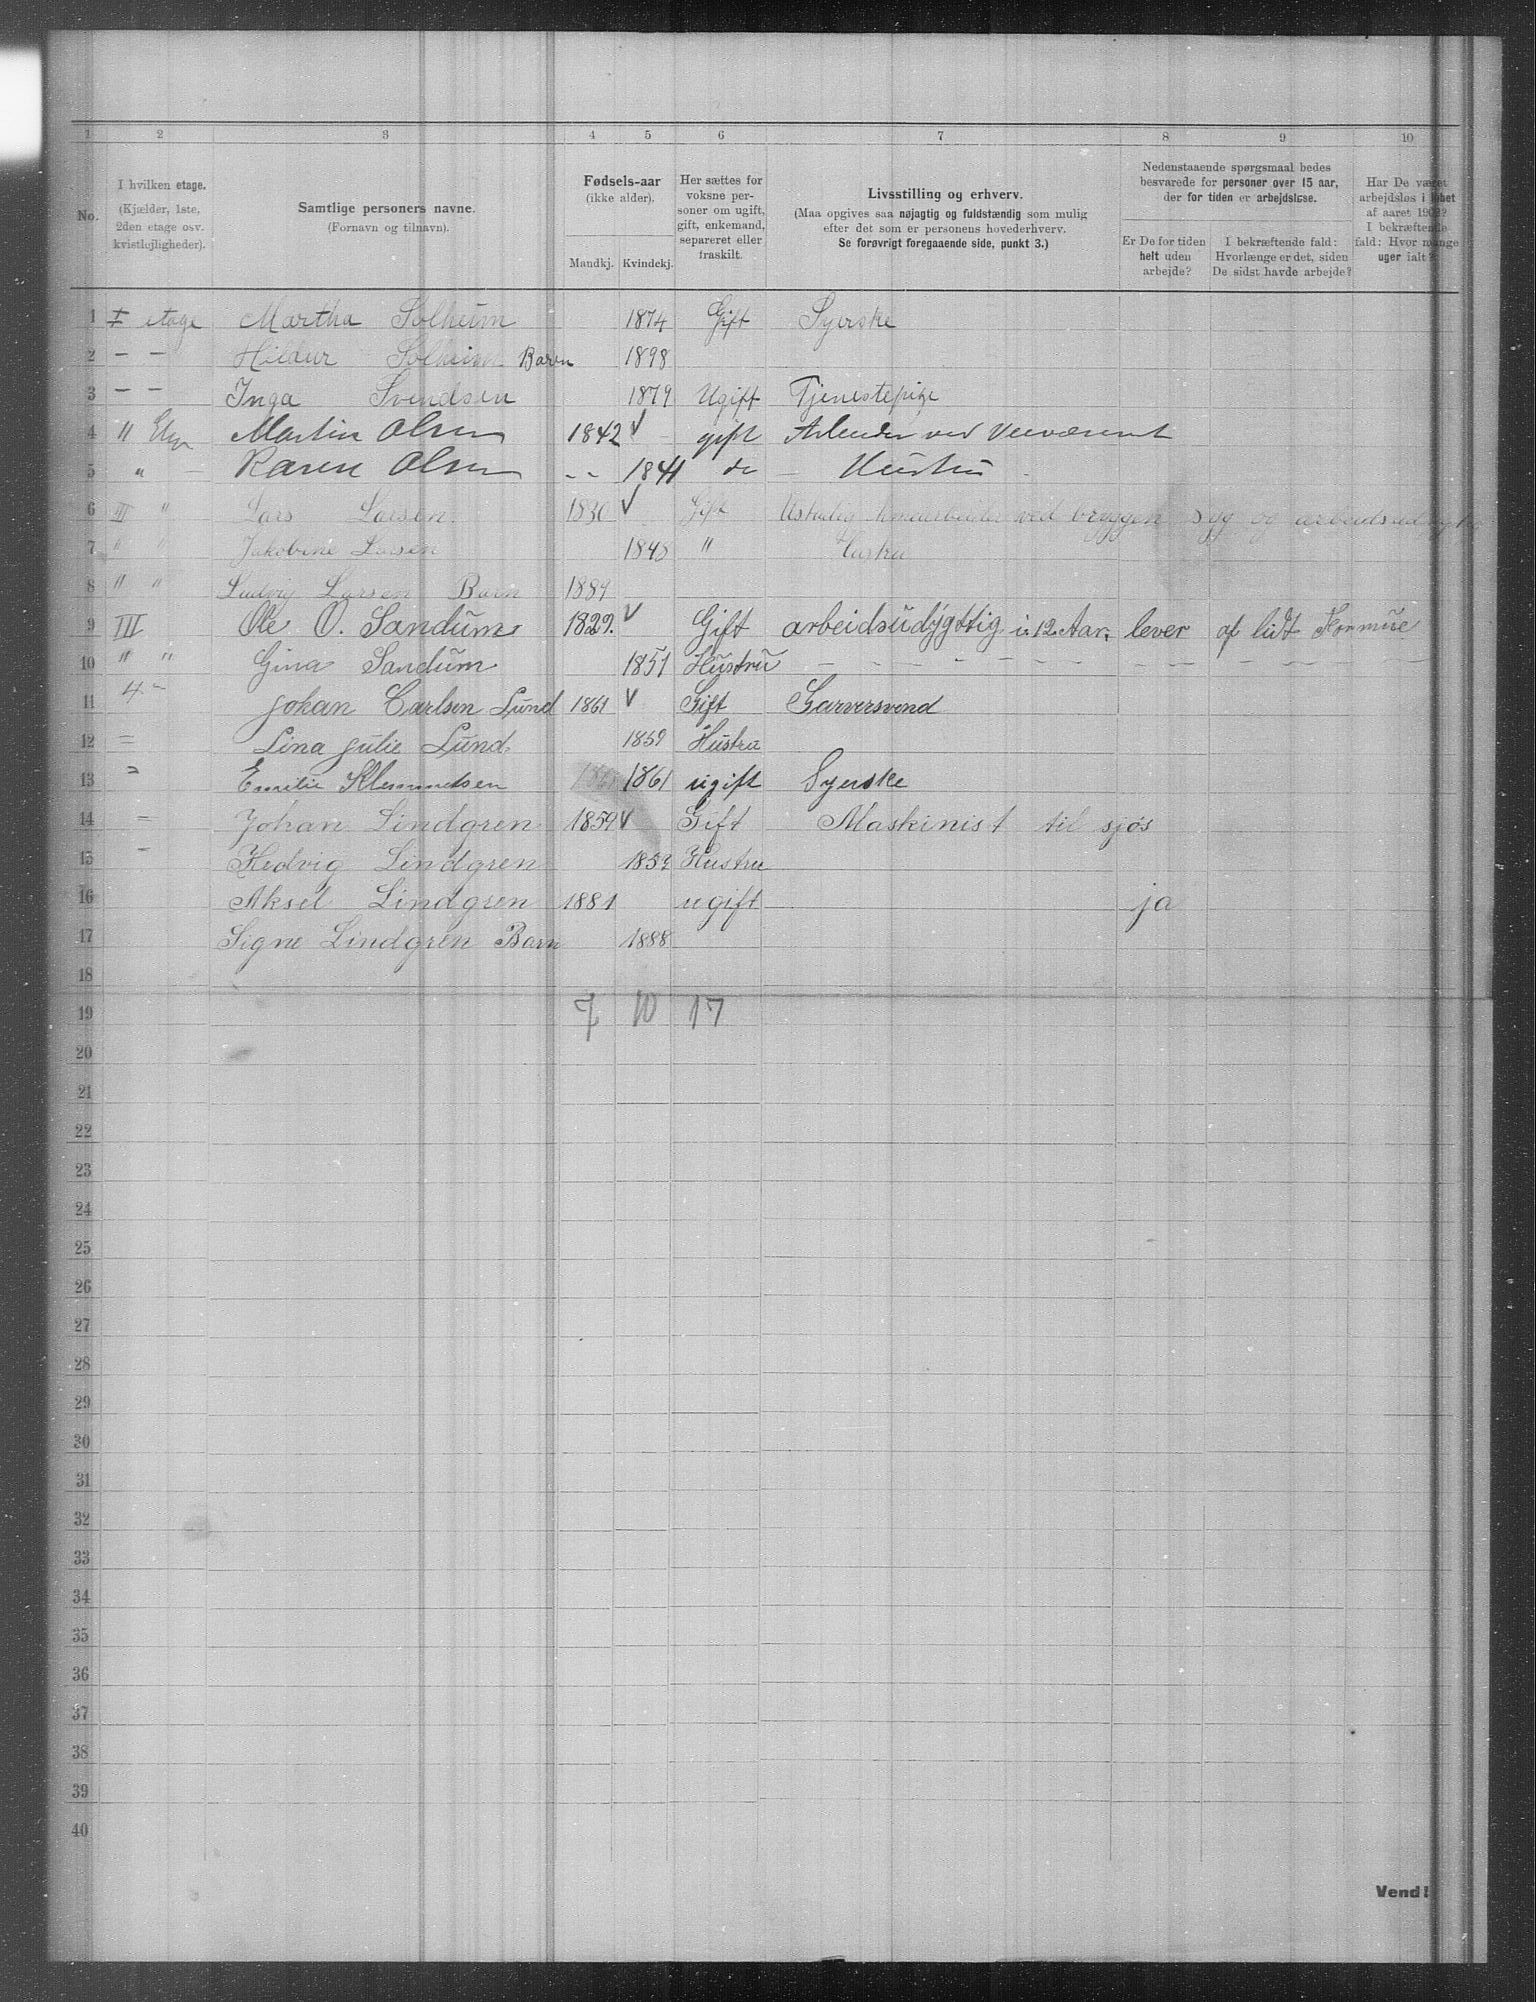 1 2 3 4 5 6 7 8 9 10
No.
I hvilken etage.
(Kjælder, 1ste,
2den etage osv.
kvistlejligheder).
Samtlige personers navne.
(Fornavn og tilnavn).
Fødsels-aar
(ikke alder).
Mandkj. Kvindekj.
Her sættes for
voksne per-
soner om ugift,
gift, enkemand,
separeret eller
fraskilt.
Livsstilling og erhverv.
(Maa opgives saa nøjagtig og fuldstændig som mulig
efter det som er personens hovederhverv.
Se forøvrigt foregaaende side, punkt 3.)
Nedenstaaende spørgsmaal bedes
besvarede for personer over 15 aar,
der for tiden er arbejdsløse.
Er De for tiden
helt uden
arbejde?
I bekræftende fald:
Hvorlænge er det, siden
De sidst havde arbejde?
Har De været
arbejdsløs i løbet
af aaret 1902?
I bekræftende
fald: Hvor mange
uger ialt?
1 I etage Martha Solheim 1874 Gift Syerske
2 — — Hildur Solheim Baren 1898
3 — — Inga Svendsen 1879 Ugift Tjenestepige
4 " Etge Martin Olsen 1842 √ gift Arbeider ved
5 " — Karen Olsen -- 1841 do — Hustru
6 III " Lars Larsen 1830 √ Gift ved bryggen syg og
7 " " Jakobine Larsen 1848 " Hustru
8 " " Ludvig Larsen Barn 1889
9 III Ole O. Sandum 1829. √ Gift arbeidsudygttig i 12 Aar, lever af lidt Kommune
10 " " Gina Sandum 1851 Hustru — — — — — — — — — —
11 4 – Johan Carlsen Lund 1861 √ Gift Garversvend
12 = Lina Julie Lund. 1859 Hustru
13 = Emilie Klemmetsen 1861 ugift Syerske
14 = Johan Lindgren 1859 √ Gift Maskinist til sjøs
15 – Hedvig Lindgren 1853 Hustru
16 Aksel Lindgren 1881 ugift ja
17 Signe Lindgren Barn 1888
18
19 7 10 17
20
21
22
23
24
25
26
27
28
29
30
31
32
33
34
35
36
37
38
39
40
Vend!